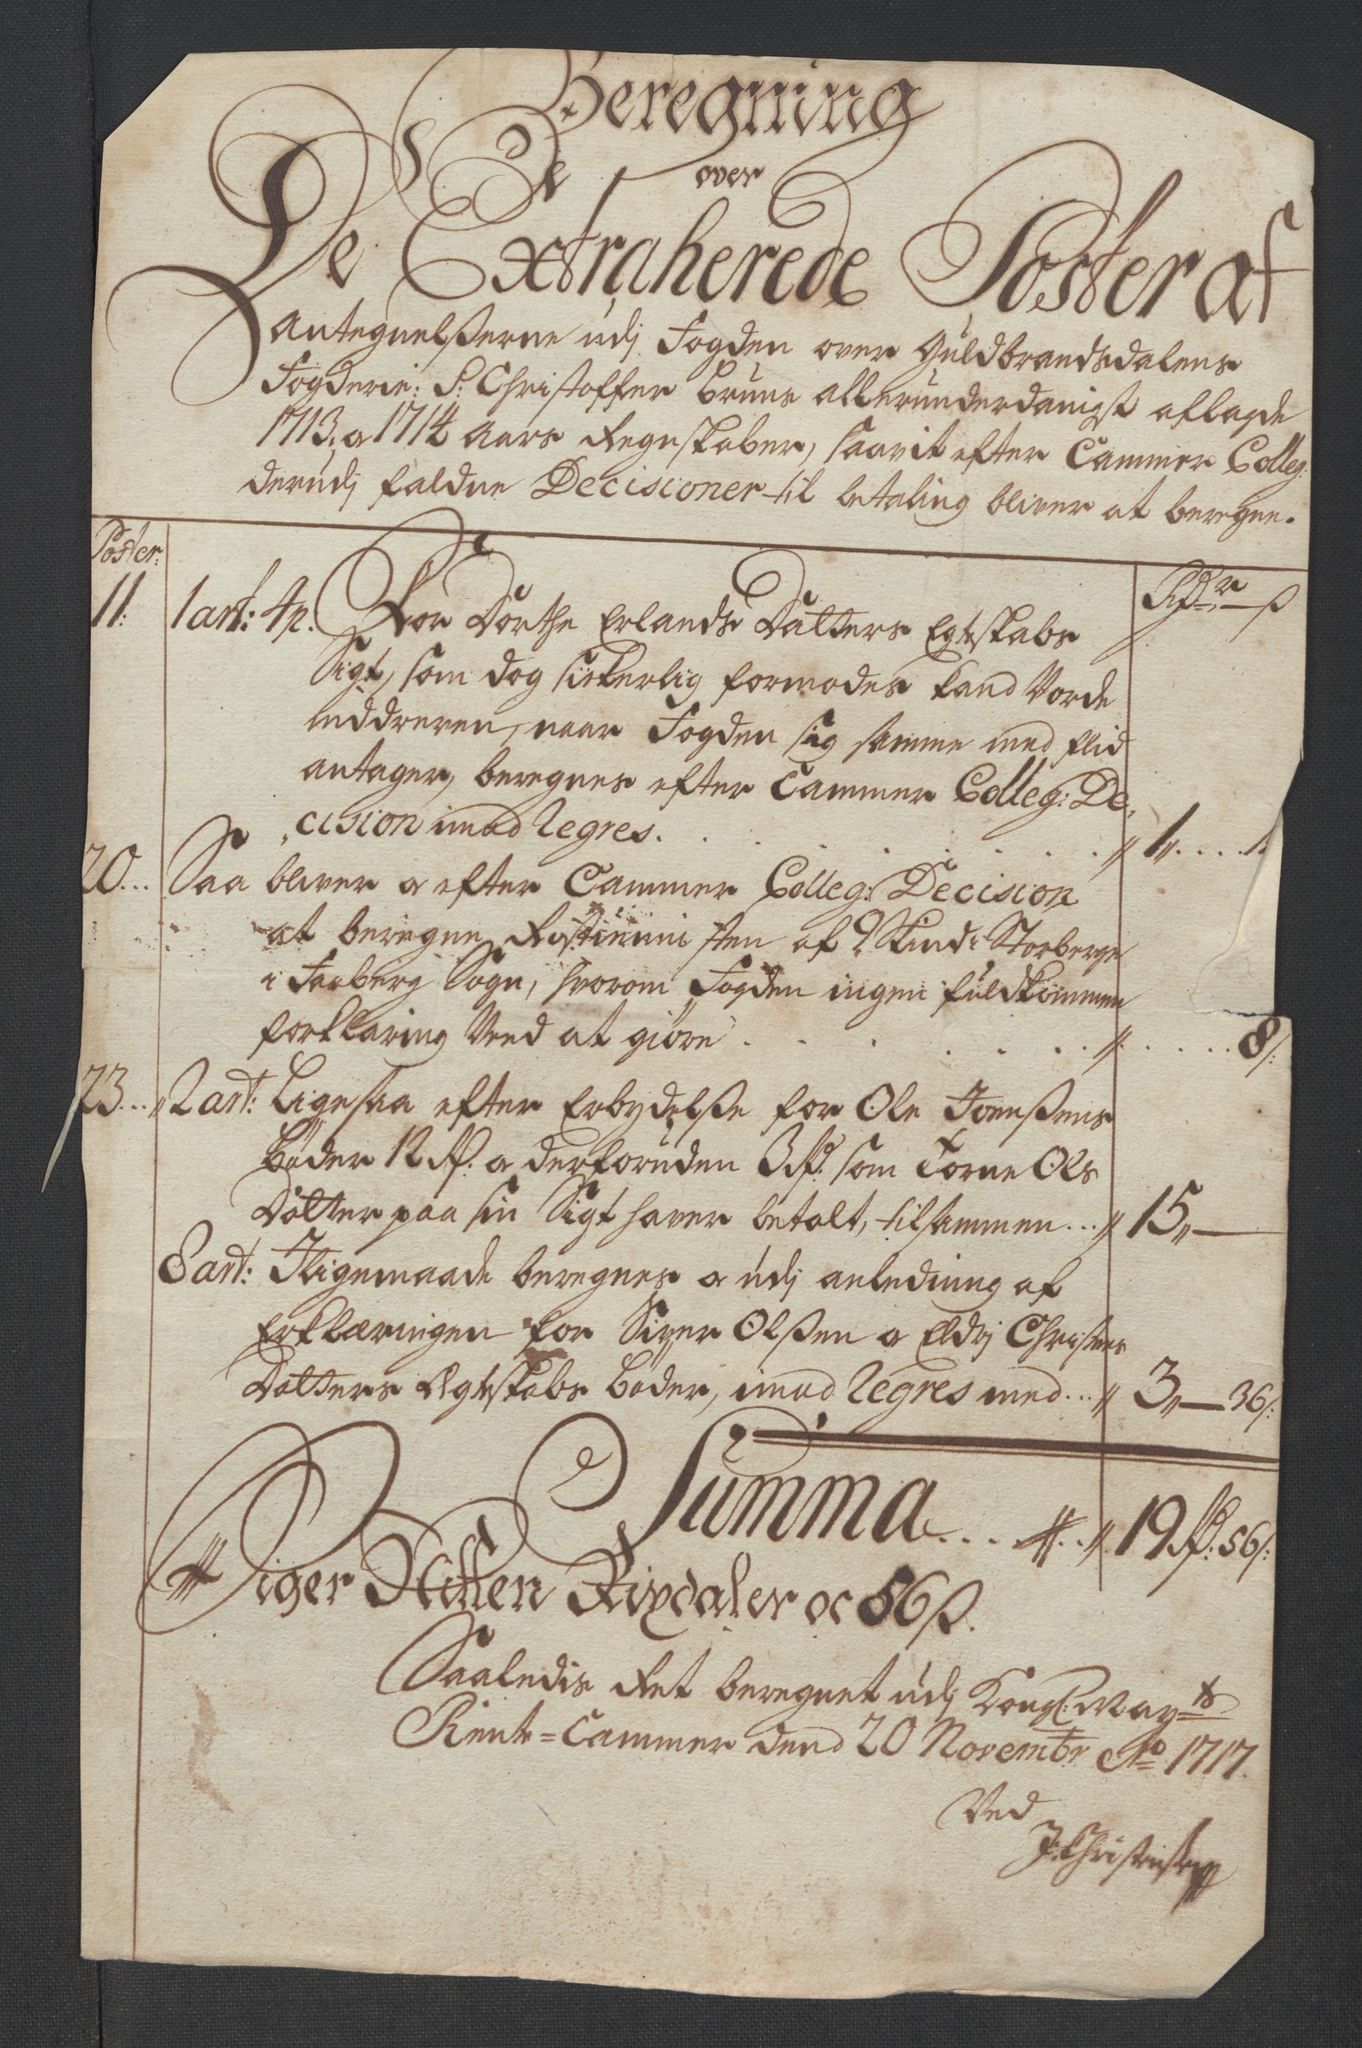 Beregning
over
De Extraherede Poster af
Antegnelßerne udj Fogden over Guldbrandsdalens
Fogderie: Sr: Christoffer Bruns allerunderdanigst aflagde
1713. og 1714 Aars Regnskaber, saavit efter Cammer Colleg:
derudj faldne Decisioner til betaling bliver at beregne.
Poster: Rdr ß
11: 1 art: 4 p. For Dorthe Erlands Datters Egteskabs
Sigt, som dog sickerlig formodes kand Vorde
inddreven, naar Fogden sig samme med flid
antager, beregnes efter Cammer Colleg: De,
,cision imod Regres. . . . . . 1,,
20... Saa bliver og efter Cammer Colleg: Decision
at beregne af Skind: Storberge
i Faaberg Sogn, hvorom Fogden ingen fuldkommen
forklaring Veed at giøre . . . . . . 8ß:
23... 2 art: Ligesaa efter Erbydelße for Ole Joenßens
Bøder 12 Rd: og derforuden 3 Rd: som Torne Ols
Datter paa sin Sigt haver betalt, tilsammen... 15,,—
8 art: I ligemaade beregnes og udj anledning af
Erklæringen for Siver Olßen og Eldrj Christens
Datters Egteskabs Bøder, imod Regres med... 3,,— 36ß:
Summa... 19 Rd: 56ß:
Siger Nitten Rixdaler og 56 ß.
Saaledis Ret beregnet udj Kongl: May:ts
Rente=Cammer dend 20 Novembr Ao 1717.
Ved
J: Christensen